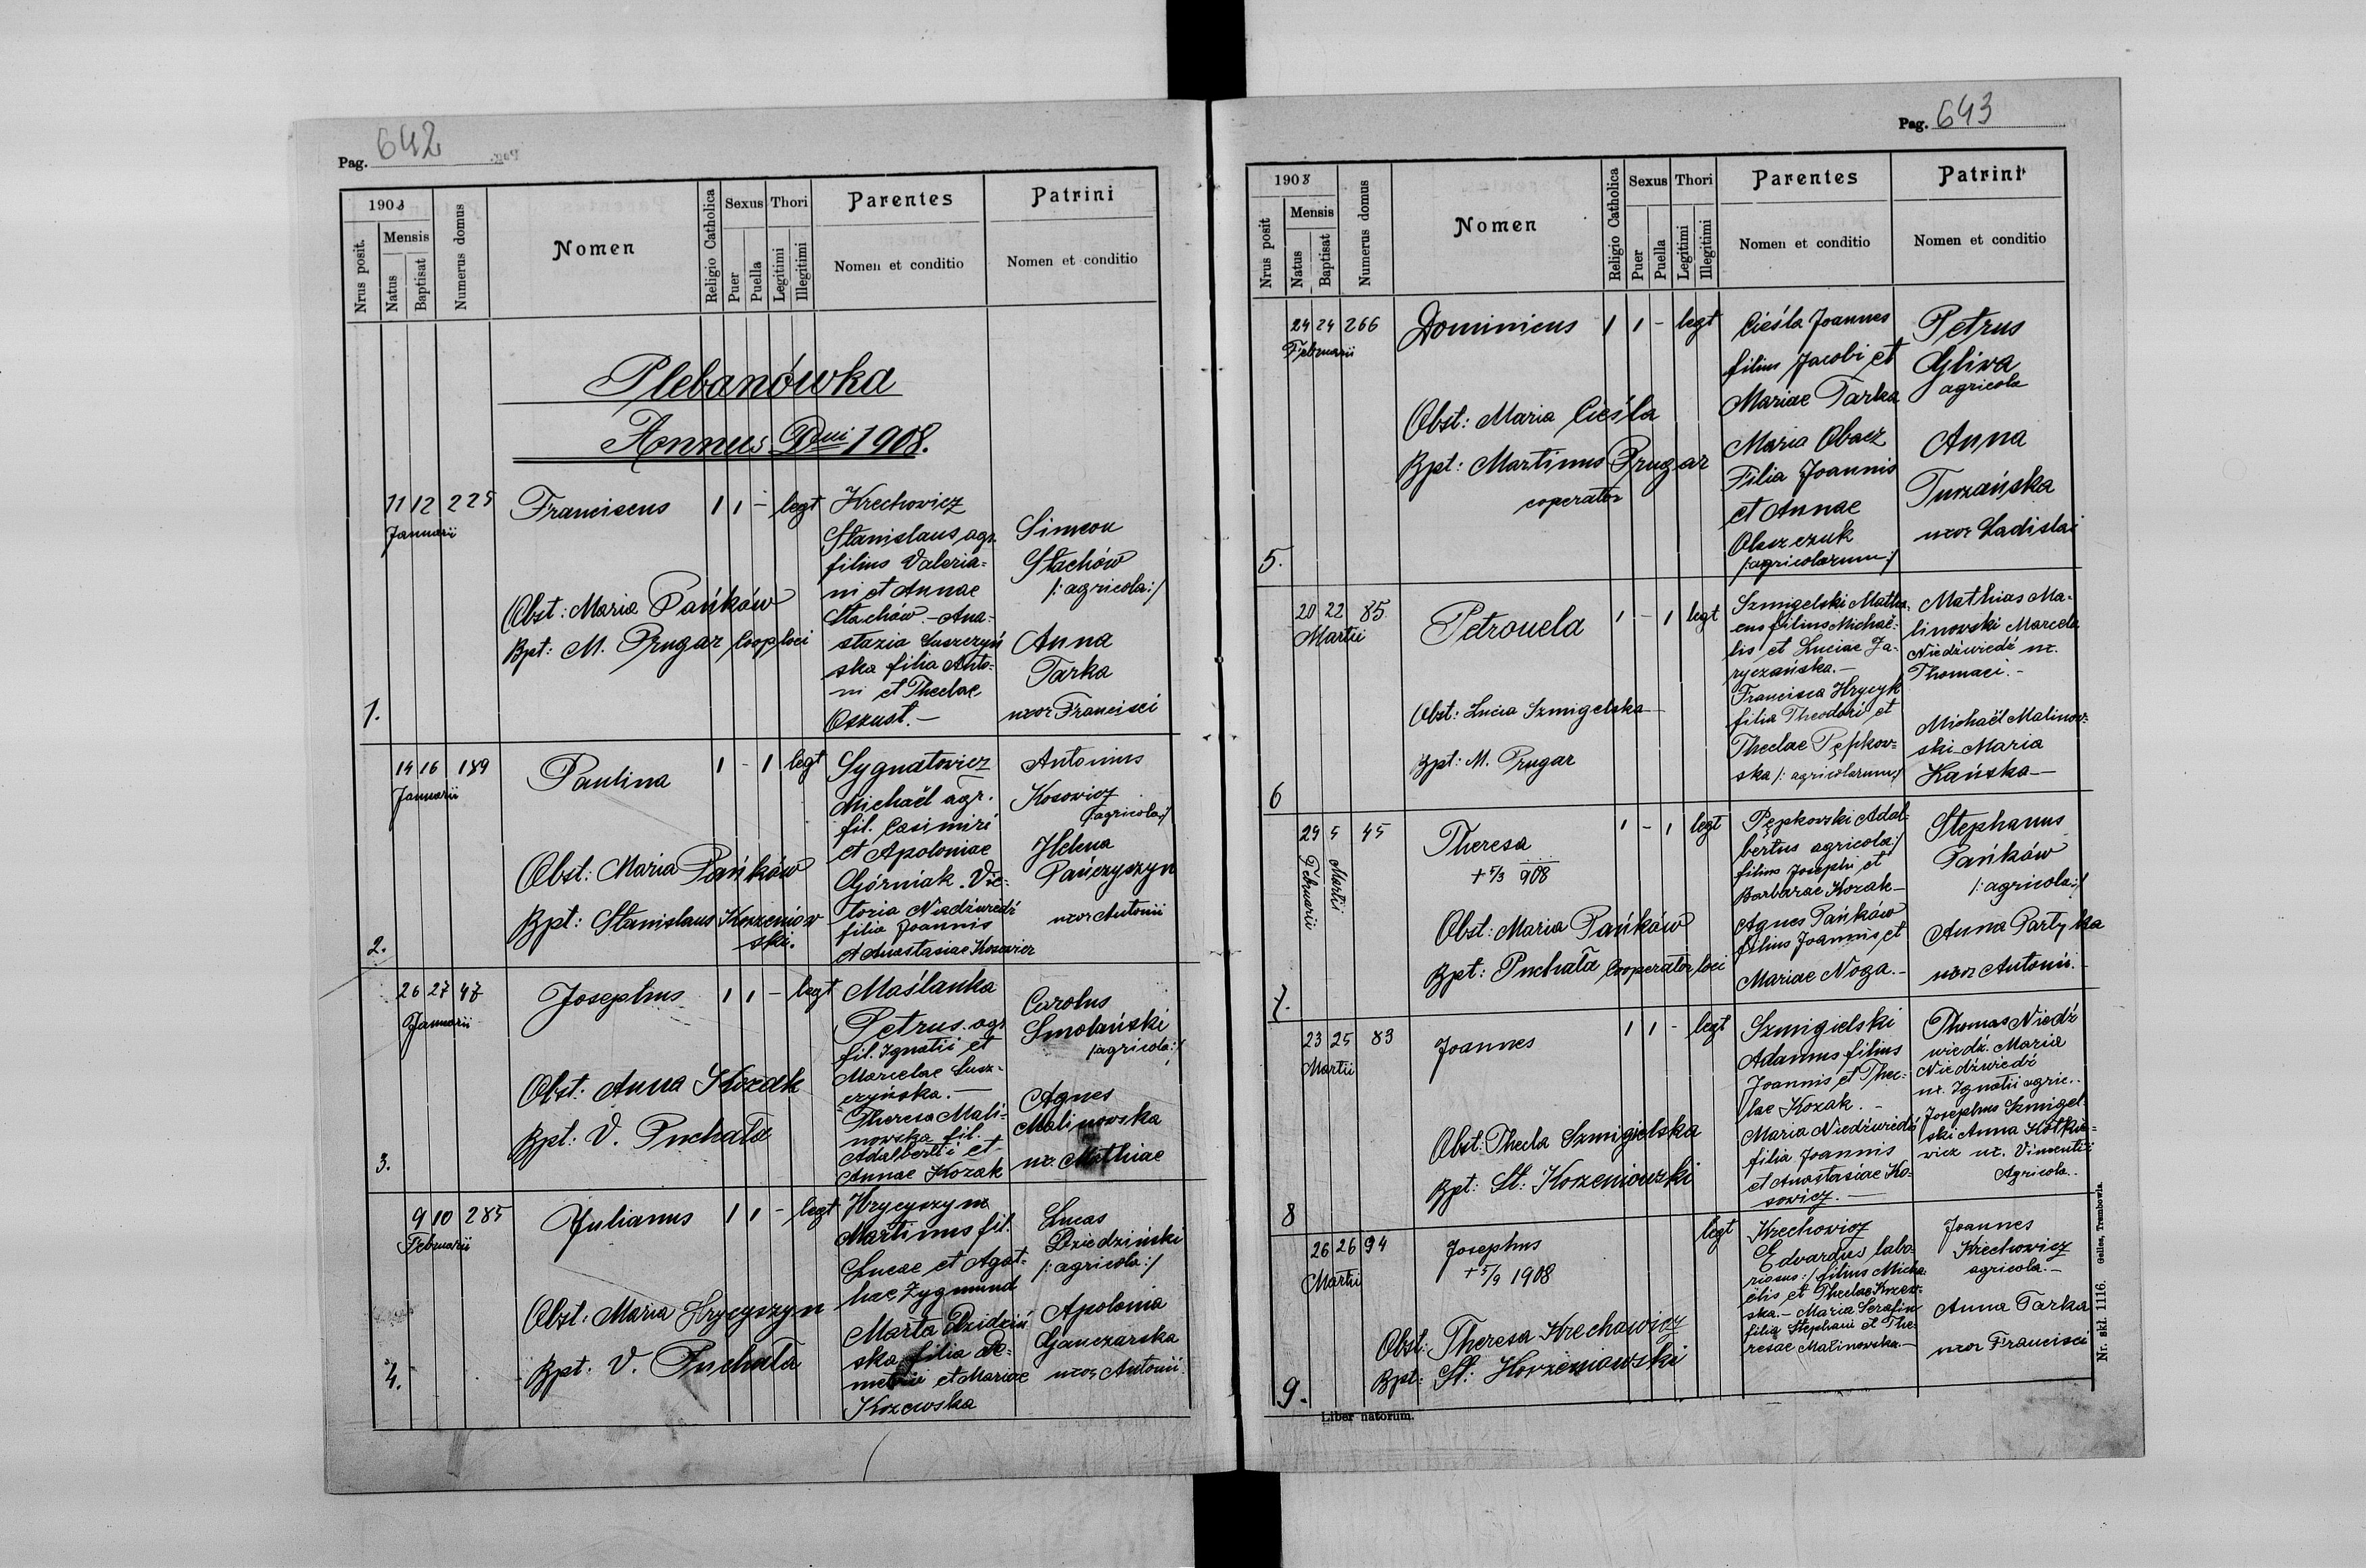 Pag. 642
1908
Nrus posit.
Mensis
Natus
Baptisat
Numerus domus
Nomen
Religio Catholica
Sexus
Puer
Puella
Thori
Legitimi
Illegitimi
Parentes
Nomen et conditio
Patrini
Nomen et conditio
Plebanówka
Annus Dni 1908.
1.
11 12 225
Januarii
Franciscus 1 1 - legt
Obst: Maria Pańków
Bpt: M. Prugar Coop loci
Krechowicz
Stanislaus agr.
filius Valeria=
ni et Annae
Stachów. - Ana=
stazia Suszczyń
ska filia Anto=
ni et Theclae
Oskust. -
Simeon
Stachów
/: agricola :/
Anna
Tarka
uxor Francisci
2.
14 16 189
Januarii
Paulina 1 - 1 legt
Obst: Maria Pańków
Bpt: Stanislaus Korzeniow
ski.
Sygnatowicz
Michaël agr.
fil. Casimiri
et Apoloniae
Górniak. Vic=
toria Niedźwiedź
filia Joannis
et Anastasiae Kosowicz
Antonius
Kosowicz
/agricola:/
Helena
Pańczyszyn
uxor Antonii
3.
26 27 47
Januarii
Josephus 1 1 - legt
Obst: Anna Kozak
Bpt: V. Puchała
Maślanka
Petrus. agr
fil. Ignatii et
Marcelae Susz=
czyńska. -
Theresa Mali=
nowska fil.
Adalberti et
Annae Kozak
Carolus
Smolański
/:agricola:/
Agnes
Malinowska
ux. Mathiae
4.
9 10 285
Februarii
Julianus 1 1 - legt
Obst: Maria Hrycyszyn
Bpt: V. Puchała
Hrycyszyn
Martinus fil.
Lucae et Agat=
hae Zygmund
Marta Dzidziń
ska filia De=
metrii et Mariae
Kozowska
Lucas
Dziedziński
/: agricola :/
Apolonia
Ganczarska
uxor Antonii
Pag. 643
1908
Nrus posit
Mensis
Natus
Baptisat
Numerus domus
Nomen
Religio Catholica
Sexus
Puer
Puella
Thori
Legitimi
Illegitimi
Parentes
Nomen et conditio
Patrini
Nomen et conditio
5.
24 24 266
Februarii
Dominicus 1 1 - legt
Obst: Maria Cieśla
Bpt: Martinus Prugar
coperator
Cieśla Joannes
filius Jacobi et
Mariae Tarka
Maria Obacz
Filia Joannis
et Annae
/:agricolarum:/
Petrus
Gliwa
agricola
Anna
Turzańska
uxor Ladislai
6
20 22 85
Martii
Petronela 1 - 1 legt
Obst: Lucia Szmigelska
Bpt: M. Prugar
Szmigelski Matha=
eus filius Michaë=
lis et Luciae Ja=
ryczańska. -
Francisca Hrycyk
filia Theodori et
Theclae Pępkow=
ska /: agricolarum:/
Mathias Ma=
linovski Marcela
Niedźwiedź ux.
Thomaei. -
Michaël Malinow=
ski Maria
Kańska -
7.
29 5 45
Februarii
Martii
Theresa
+ 7/3 908
1 - 1 legt
Obst: Maria Pańków
Bpt: Puchała Cooperator loci
Pępkovski Adal=
bertus agricola:/
filius Josephi et
Barbarae Kozak -
Agnes Pańków
filius Joannis et
Mariae Noga. -
Stephanus
Pańków
/: agricola:/
Anna Partyka
uxor Antonii. -
8
23 25 83
Martii
Joannes 1 1 - legt
Obst: Thecla Szmigielska
Bpt: St: Korzeniowski
Szmigielski
Adamus filius
Joannis et Thec=
lae Kozak. -
Maria Niedźwiedź
filia Joannis
et Anastasiae Ko=
sowicz. -
Thomas Niedź
wiedź. Maria
Niedźwiedź
ux. Ignatii agric..
Josephus Szmigel=
ski Anna Kotkie=
wicz ux. Vincentii
Agricola..
9.
26 26 94
Martii
Josephus
+ 5/9 1908
legt
Obst: Theresa Krechowicz
Bpt: St: Korzeniowski
Krechowicz
Edvardus labo=
riosus:/ filius Micha
ëlis et Theclae
ska. - Maria Serafin
filia Stephani et The=
resae Malinowska. -
Joannes
Krechowicz
agricola. -
Anna Tarka
uxor Francisci
Liber natorum.
Nr. skł. 1116. Gelles, Trembowla.